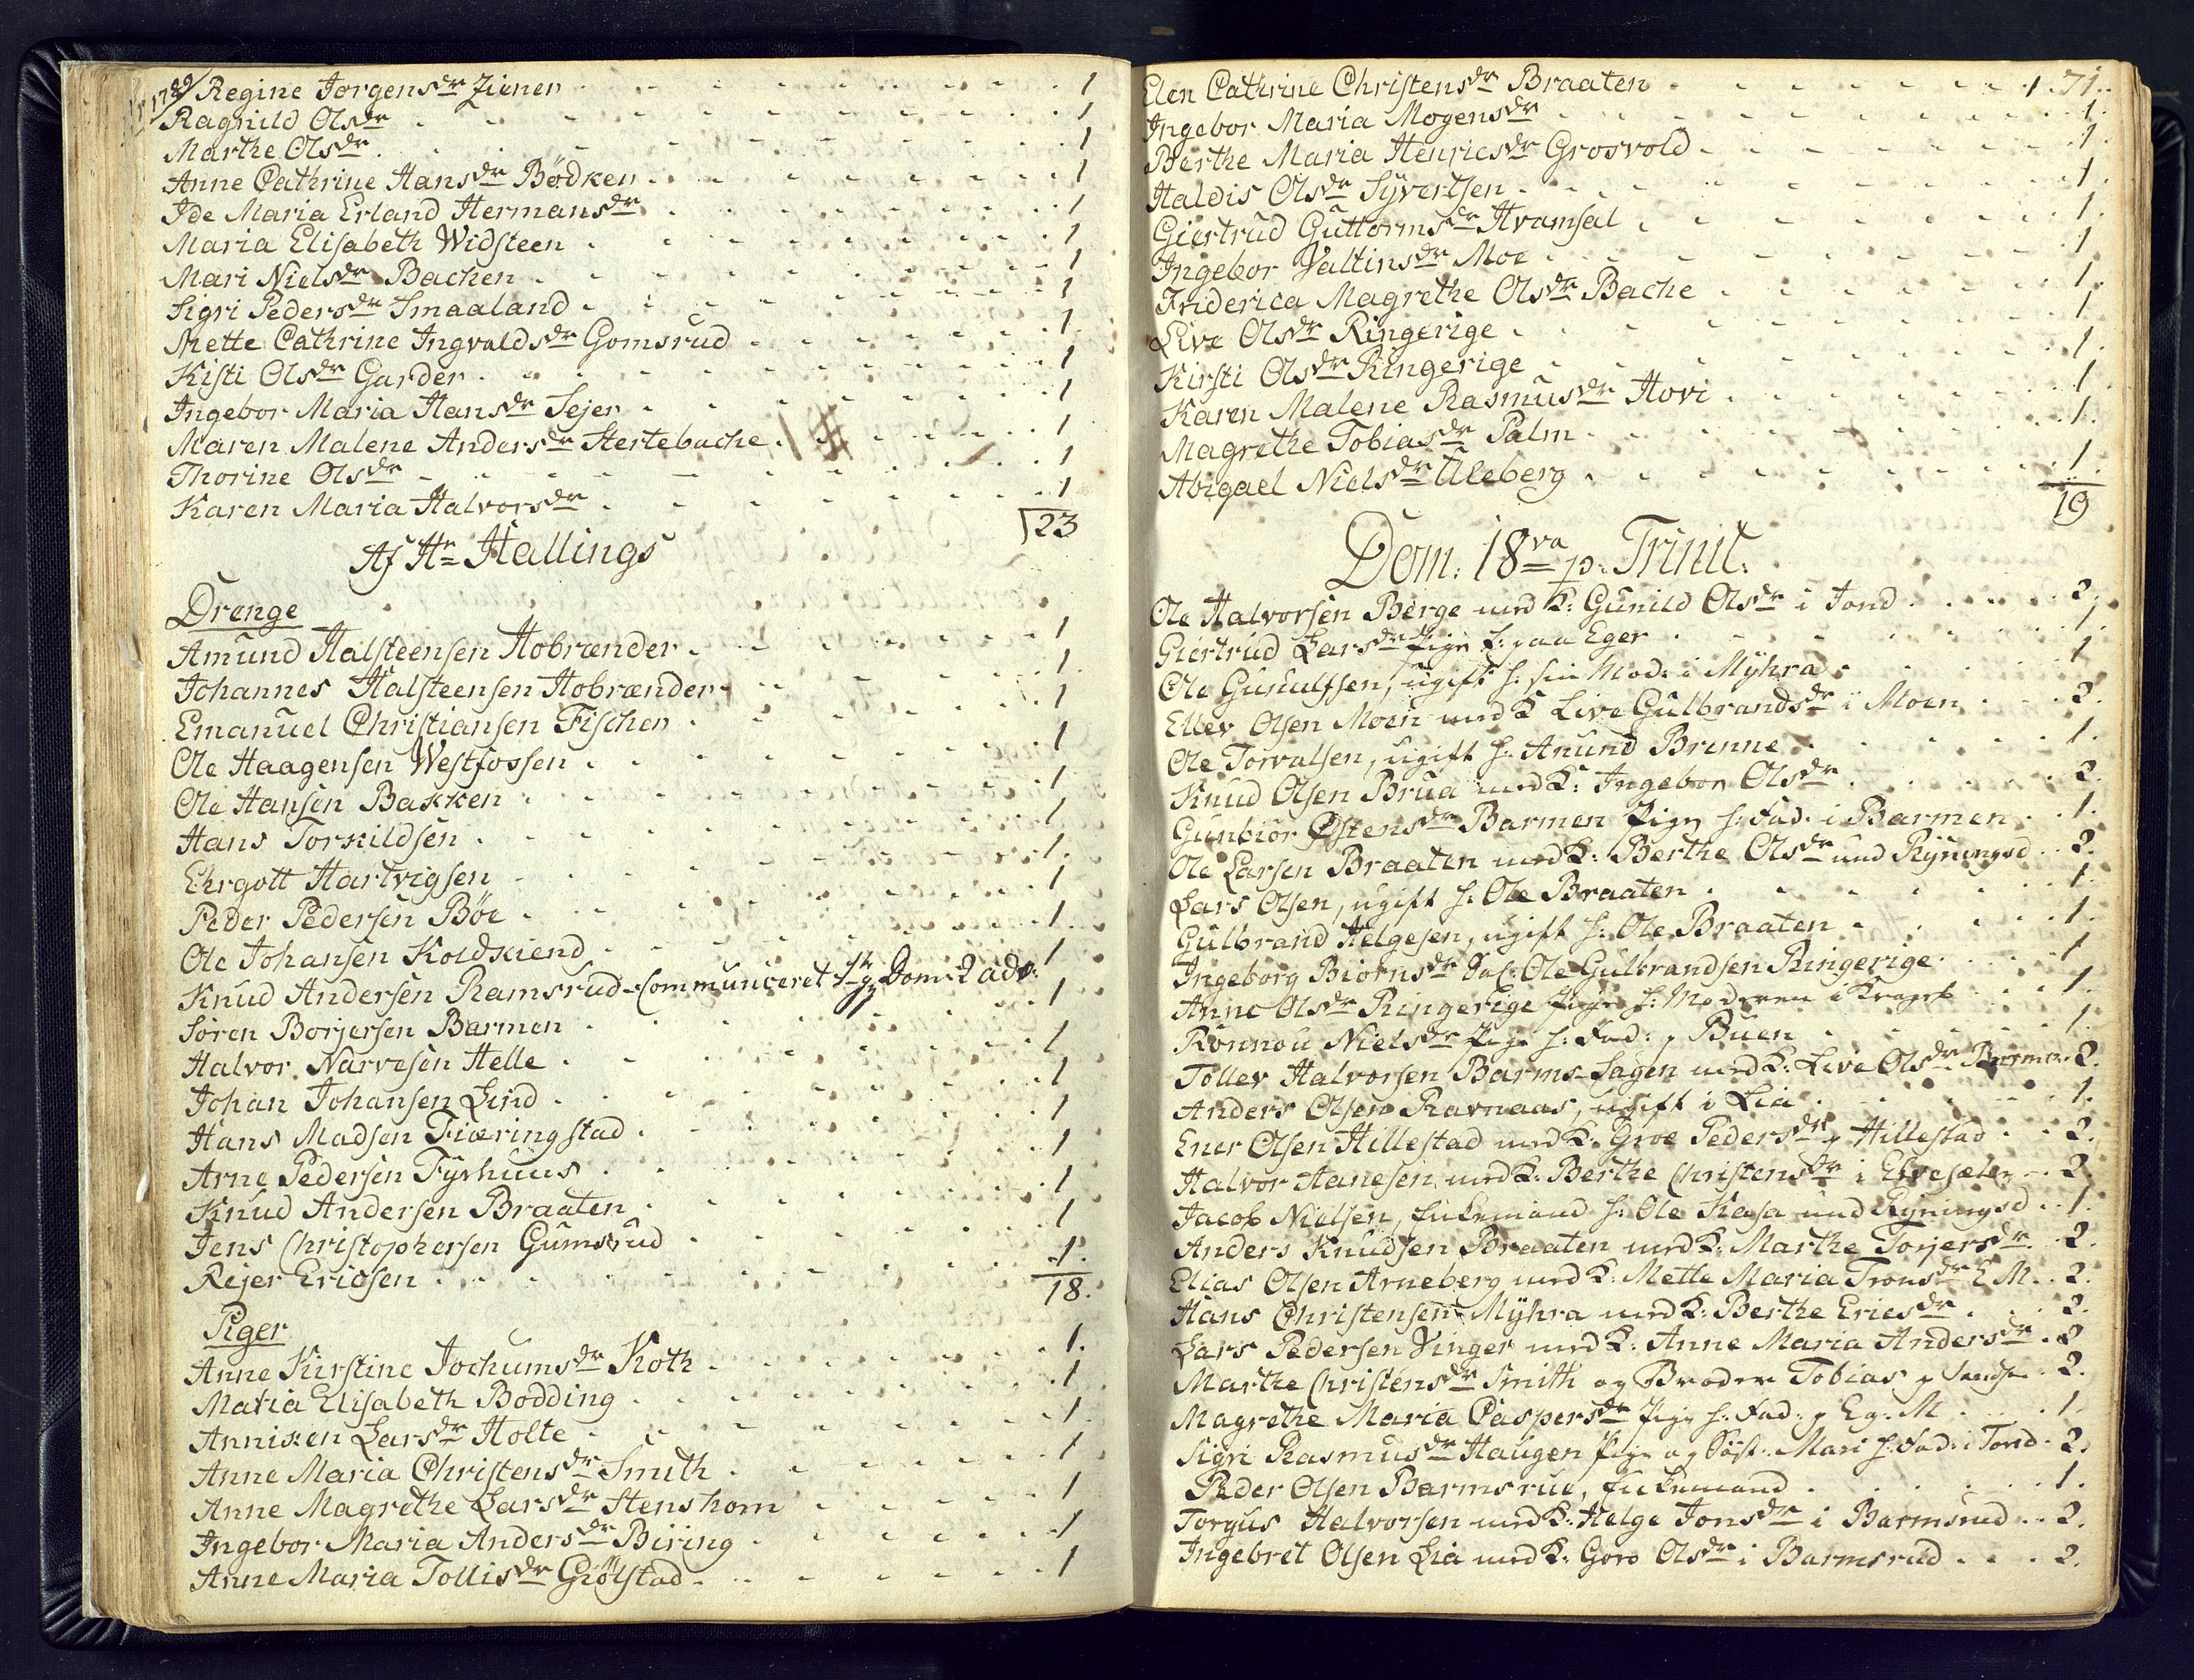 1789 Regine Jorgensdr Zienen - - - 1
Ragnild Olsdr - - - 1
Marthe Olsdr - - - 1
Anne Cathrine Hansdr Bødken - - - 1
Ide Maria Erland Hermansdr - - - 1
Maria Elisabeth Widsteen - - - 1
Mari Nielsdr Bachen - - - 1
Sigri Pedersdr Smaaland - - - 1
Mette Cathrine Ingvaldsdr Gomsrud - - - 1
Kisti Olsdr Garder - - - 1
Ingebor Maria Hansdr Sejer - - - 1
Maren Malene Andersdr Stertebache - - - 1
Thorine Olsdr - - - 1
Karen Maria Halvorsdr - - - 1
23
Af Hr Hallings
Drenge
Amund Halsteensen Hobrænder - - - 1
Johannes Halsteensen Hobrænder - - - 1
Emanuel Christiansen Fischer - - - 1
Ole Haagensen Westfossen - - - 1
Ole Hansen Bakken - - - 1
Hans Torkildsen - - - 1
Ehrgott Hartvigsen - - - 1
Peder Pedersen Böe - - - 1
Ole Johansen Koldkiend - - - 1
Knud Andersen Ramsrud - Communiceret 1te g. Dom. 2 adv. 1
Søren Borjersen Barmen - - - 1
Halvor Narvesen Helle - - - 1
Johan Johansen Lind - - - 1
Hans Madsen Fiæringstad - - - 1
Arne Pedersen Fyrhuus - - - 1
Knud Andersen Braaten - - - 1
Jens Christophersen Gumsrud - - - 1
Rejer Ericsen - - - 1.
18.
Piger
Anne Kirstine Jochumsdr Koth - - - 1.
Maria Elisabeth Bodding - - - 1
Anniken Larsdr Holte - - - 1
Anne Maria Christensdr Smith - - - 1
Anne Magrethe Larsdr Stenshorn - - - 1
Ingebor Maria Andersdr Biring - - - 1
Anne Maria Tollisdr Giølstad - - - 1
Elen Cathrine Christensdr Braaten - - - 1. 71.
Ingebor Maria Mogensdr - - - 1.
Berthe Maria Henricsdr Grosvold - - - 1.
Haldis Olsdr Syvertsen - - - 1.
Giertrud Guttormsdr Hvamsal - - - 1.
Ingebor Valtinsdr Moe - - - 1
Friderica Magrethe Olsdr Bache - - - 1.
Live Olsdr Ringerige - - - 1
Kirsti Olsdr Ringerige - - - 1.
Karen Malene Rasmusdr Hovi - - - 1
Magrethe Tobiasdr Palm - - - 1.
Abigael Nielsdr Uleberg - - - 1
19
Dom: 18va p. Trinit.
Ole Halvorsen Berge med K: Gunild Olsdr i Jond - - - 2.
Giertrud Larsdr Pige f: paa Eger - - - 1.
Ole Gunulfsen, ugift h: sin Mod: i Myhra - - - 1
Ellev Olsen Moen med K Live Gulbrandsdr i Moen - - - 2.
Ole Torvalsen, ugift h: Anund Brinne - - - 1.
Knud Olsen Brua med K: Ingebor Olsdr - - - 2.
Gunbior Østensdr Barmen Pige h: Fad: i Barmen - - - 1.
Ole Larsen Braaten med K: Berthe Olsdr und Ryningsd - - 2.
Lars Olsen, ugift h: Ole Braaten - - - 1.
Gulbrand Helgesen, ugift h: Ole Braaten - - - 1.
Ingeborg Biornsdr Sal: Ole Gulbrandsen Ringerige - - - 1
Anne Olsdr Ringerige Pige h: Moderen i - - - 1.
Rønnou Nielsdr Pige h: Fad: p Buen - - - 1.
Tollev Halvorsen Barms-Sagen med K: Live Olsdr Barmen 2.
Anders Olsen Ravnaas, ugift i Lia - - - 1.
Ener Olsen Hillestad med K: Groe Pedersdr p Hillestad - - 2.
Halvor Aanesen med K: Berthe Christensdr i - - 2
Jacob Nielsen, Enkemand h: Ole Kasa und Ryningsd - - 1.
Anders Knudsen Braaten med K: Marthe Torjersdr - 2.
Elias Olsen Arneberg med K: Mette Maria Tronsdr E M - - 2.
Hans Christensen Myhra med K: Berthe Ericsdr - - - 2.
Lars Pedersen Vinger med K: Anne Maria Andersdr - 2
Marthe Christensdr Smith og Broder Tobias p - 2.
Magrethe Maria Caspersdr Pige h: Fad: p Eg: M - - - 1.
Sigri Rasmusdr Haugen Pige og Søst: Mari h: Fad: i Jond - 2.
Peder Olsen Barmsrue, Enkemand - - - 1.
Torgus Halvorsen med K: Helge Jonsdr i Barmsrud - - 2.
Ingebret Olsen Lia med K: Goro Olsdr i Barmsrud - - - 2.